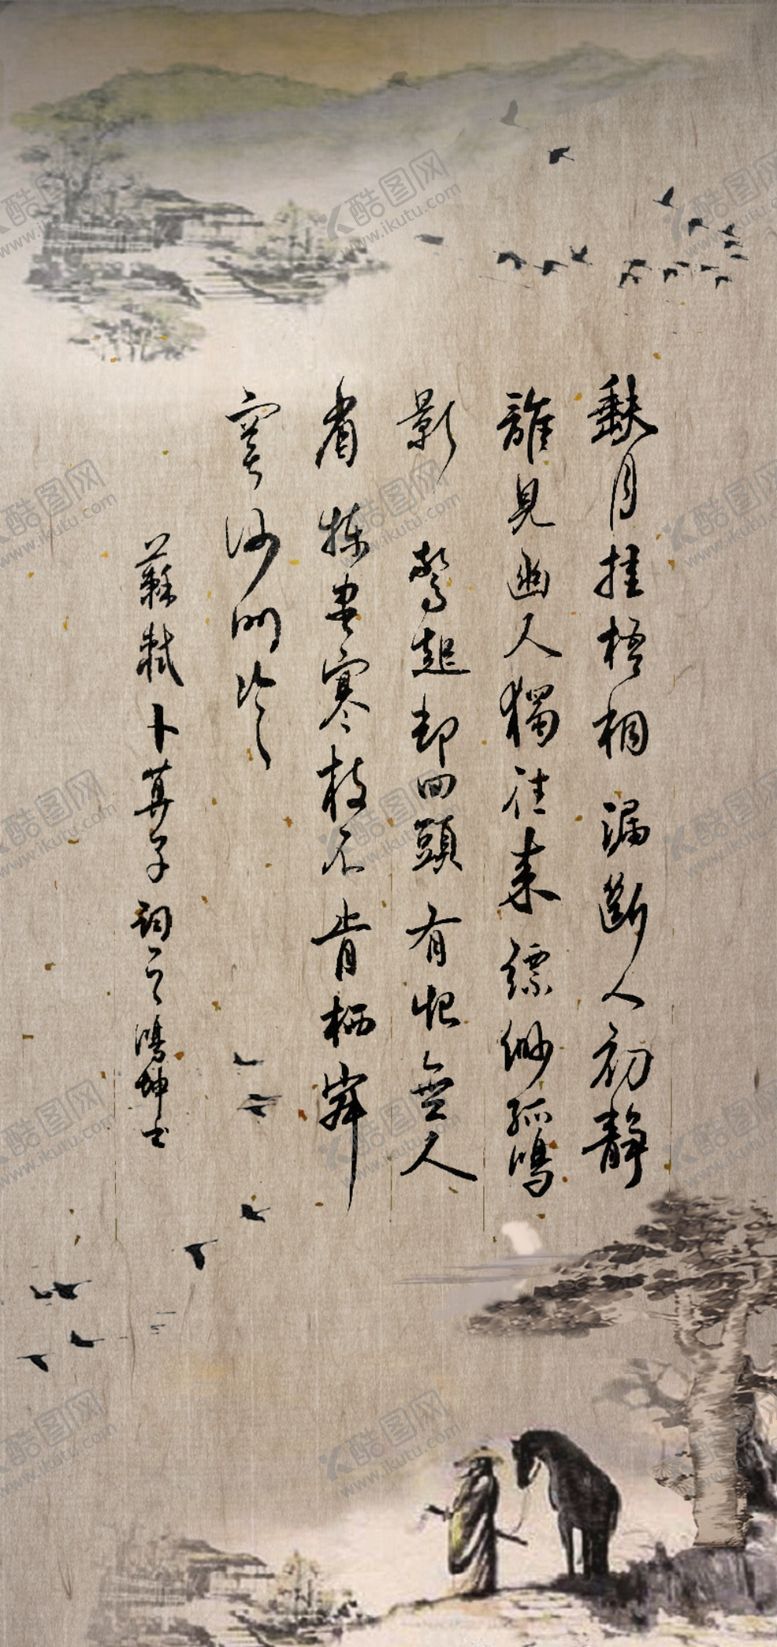 缺月挂梧桐漏斷人初靜
誰見幽人獨往來縹緲孤鴻
影 驚起却回頭有恨無人
省揀盡寒枝不肯栖寂
寞沙洲冷
蘇軾卜算子詞 鴻坤書
酷图网
www.ikutu.com